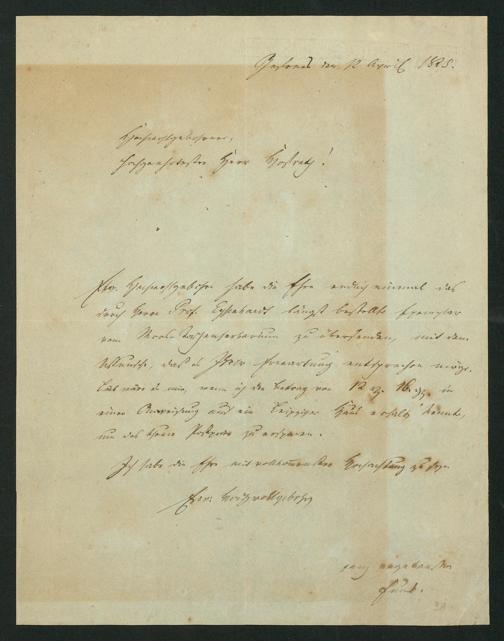 Gefrees den 12 April 1825.
Hochwohlgeborener,
Hochgeehrtester Herr Hofrath!
Ew. Hochwohlgeboren habe die Ehre endlich einmal das
durch Herrn Prof. Eysenhardt längst bestellte Exemplar
vom Moos Taschenherbarium zu übersenden, mit dem
Wunsche, daß es Ihrer Erwartung entsprechen möge.
Lieb wäre es mir, wenn ich den Betrag von 12 16 in
einer Anweisung auf ein Leipziger Haus erhalten könnte,
um das theure Postporto zu ersparen.
Ich habe die Ehre mit vollkommenster Hochachtung zu seyn
Ewr. Hochwohlgeboren
ganz ergebenster
Funck.